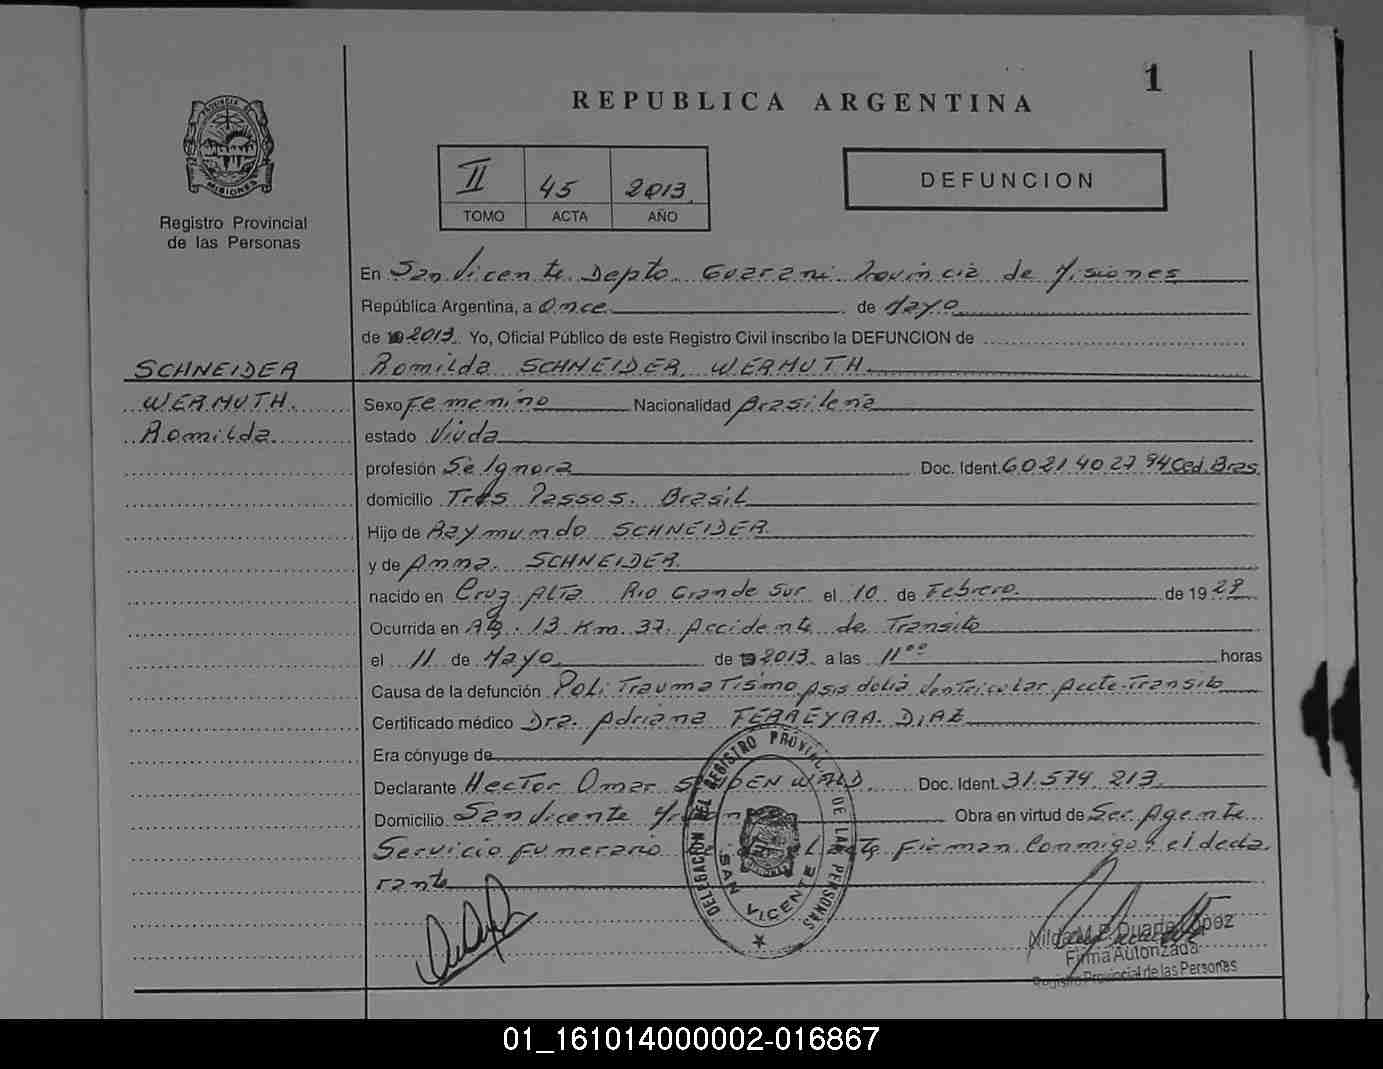 1
REPUBLICA ARGENTINA
PROVINCIA DE
MISIONES
Registro Provincial
de las Personas
II 45 2013
TOMO ACTA AÑO
DEFUNCION
En San Vicente Depto. Guarani Provincia de Misiones
República Argentina, a Once de Mayo
de 2013 Yo, Oficial Público de este Registro Civil inscribo la DEFUNCION de
SCHNEIDER
Romilda SCHNEIDER WERMUTH
WERMUTH.
Sexo Femenino Nacionalidad Brasileña
Romilda
estado Viuda
profesión Se Ignora Doc. Ident. 6021402794 Ced. Bras.
domicilio Tres Passos. Brasil
Hijo de Raymundo SCHNEIDER
y de Anna. SCHNEIDER.
nacido en Cruz Alta Rio Grande Sur el 10 de Febrero de 19
Ocurrida en 13 Km. 37. Accidente de Transito
el 11 de Mayo de 2013 a las 11 00 horas
Causa de la defunción Poli Traumatismo Ventricular Accte. Transito
Certificado médico Dra. Adriana FERREYRA. DIAZ
Era cónyuge de
Declarante Hector Omar Doc. Ident. 31.574.213.
Domicilio San Vicente Obra en virtud de Ser Agente
Servicio Funerario Firman Conmigo: el decla
rante
DELEGACION DEL REGISTRO PROVINCIAL DE LAS PERSONAS
SAN VICENTE
Nilda M. P. Duarte López
Firma Autorizada
Registro Provincial de las Personas
01_161014000002-016867